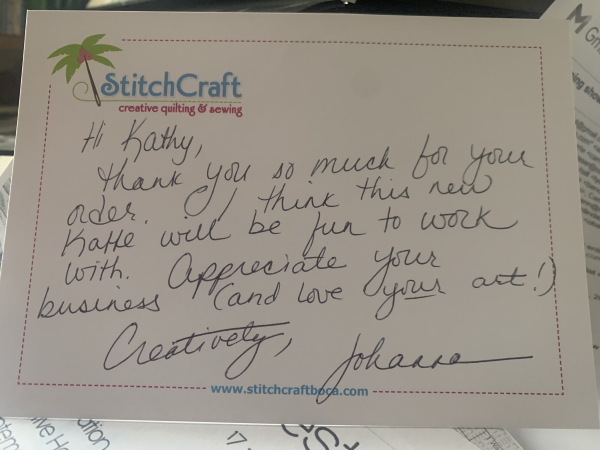 StitchCraft
creative quilting & sewing
Hi Kathy,
Thank you so much for your
order. I think this new
Kaffe will be fun to work
with. Appreciate your
business (and love your art!)
Creatively, Johanna
www.stitchcraftboca.com
M Gm
17